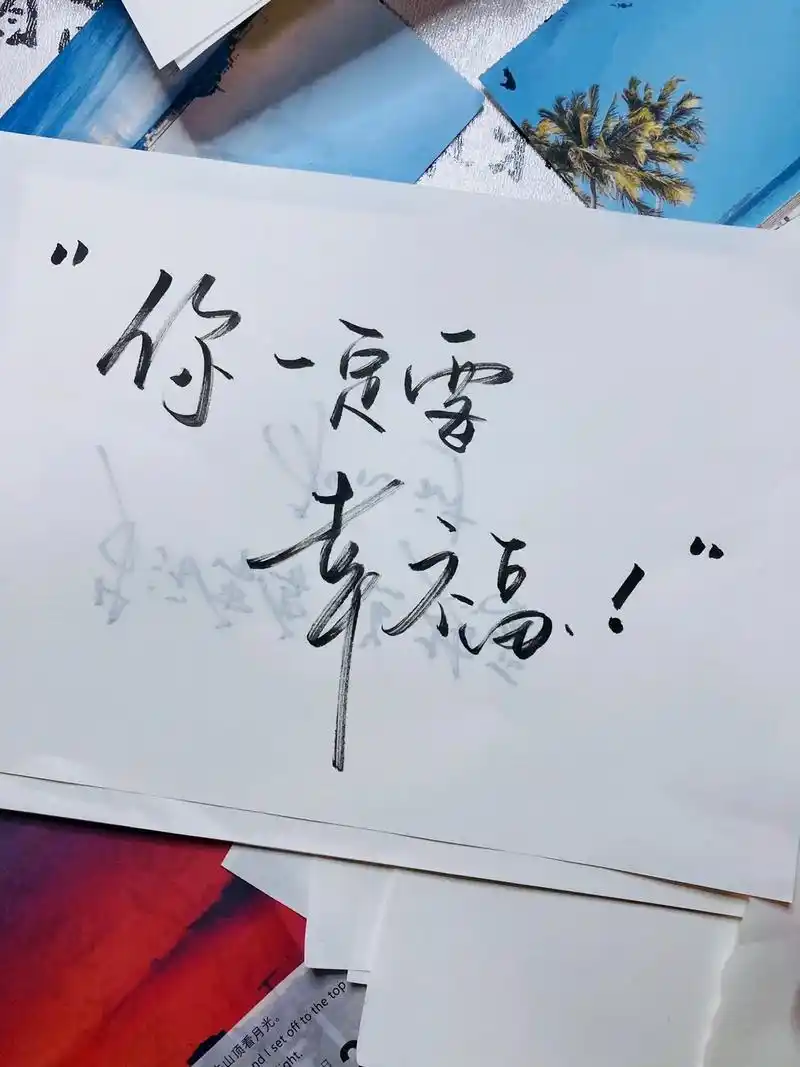 "你一定要
幸福！"
山顶看月光。
nd I set off to the top
ight.